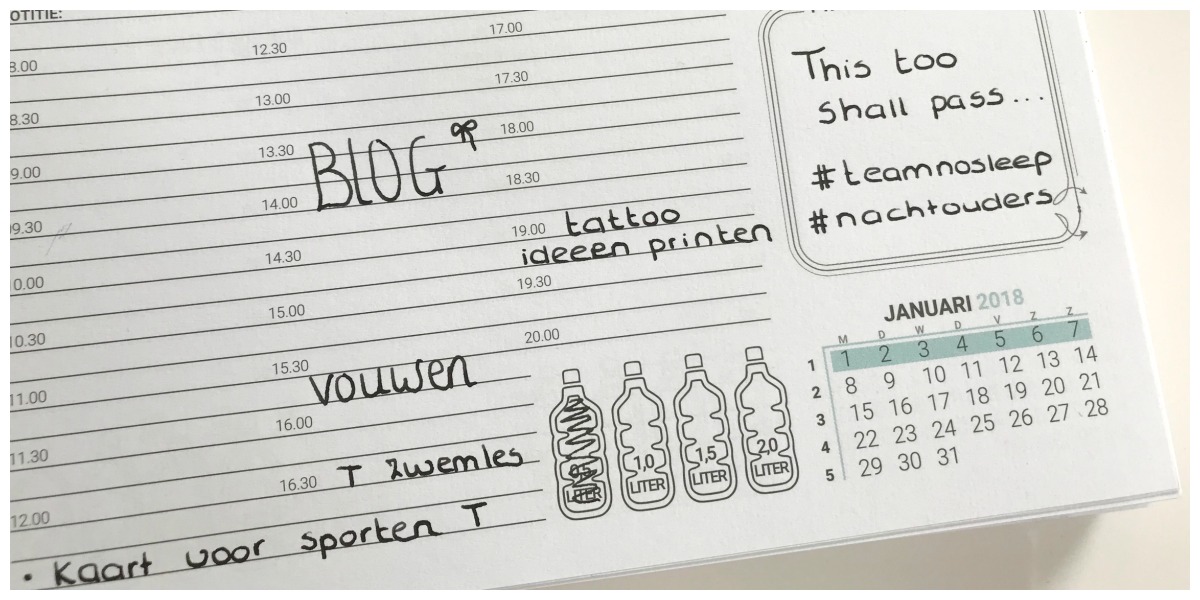 OTITIE:
8.00
8.30
9.00
09.30
10.00
10.30
11.00
11.30
12.00
12.30
13.00
13.30
BLOG
14.00
14.30
15.00
15.30
vouwen
16.00
16.30 T zwemles
• Kaart voor sporten T
17.00
17.30
18.00
18.30
19.00 tattoo
ideeen printen
19.30
20.00
0,5
LITER
1,0
LITER
1,5
LITER
2,0
LITER
This too
shall pass...
#teamnosleep
#nachtouders
JANUARI 2018
M D W D V Z Z
1 1 2 3 4 5 6 7
2 8 9 10 11 12 13 14
3 15 16 17 18 19 20 21
4 22 23 24 25 26 27 28
5 29 30 31